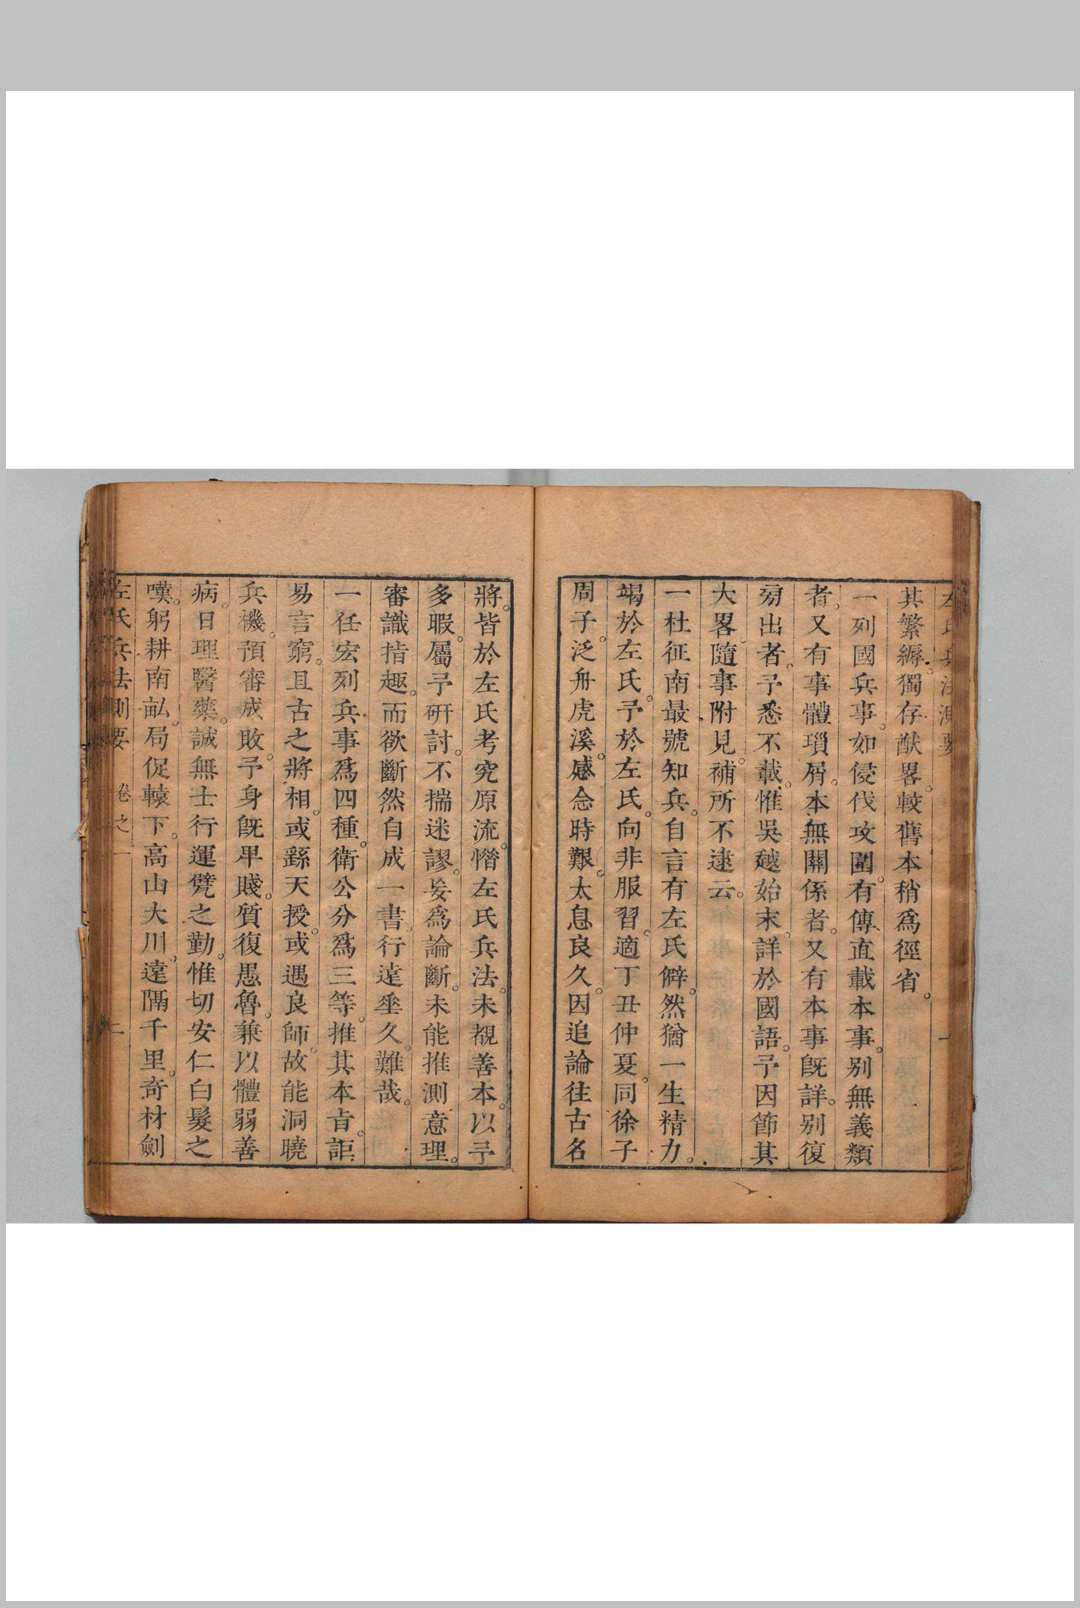 其繁縟。獨存猷畧。較舊本稍爲徑省。
一列國兵事。如侵伐攻圍。有傳直載本事。別無義類
者。又有事體瑣屑。本無關係者。又有本事旣詳。別復
旁出者。予悉不載。惟吳越始末。詳於國語。予因節其
大畧隨事附見。補所不逮云。
一杜征南最號知兵。自言有左氏癖。然猶一生精力。
竭於左氏。予於左氏。向非服習。適丁丑仲夏。同徐子
周子。泛舟虎溪。感念時艱。太息良久。因追論往古名
將。皆於左氏考究原流。憯左氏兵法。未覩善本。以予
多暇。屬予硏討。不揣迷謬。妄爲論斷。未能推測意理。
審識指趣。而欲斷然自成一書。行遠垂久。難哉。
一任宏列兵事爲四種。衛公分爲三等。推其本㫖。詎
易言窮。且古之將相。或繇天授。或遇良師。故能洞曉
兵機。預審成敗。予身旣卑賤。質復愚魯。兼以體弱善
病。日理醫藥。誠無士行運甓之勤。惟切安仁白髮之
嘆。躬耕南畝。局促轅下。高山大川。遠隔千里。奇材劍
左氏兵法測要 卷之一 二